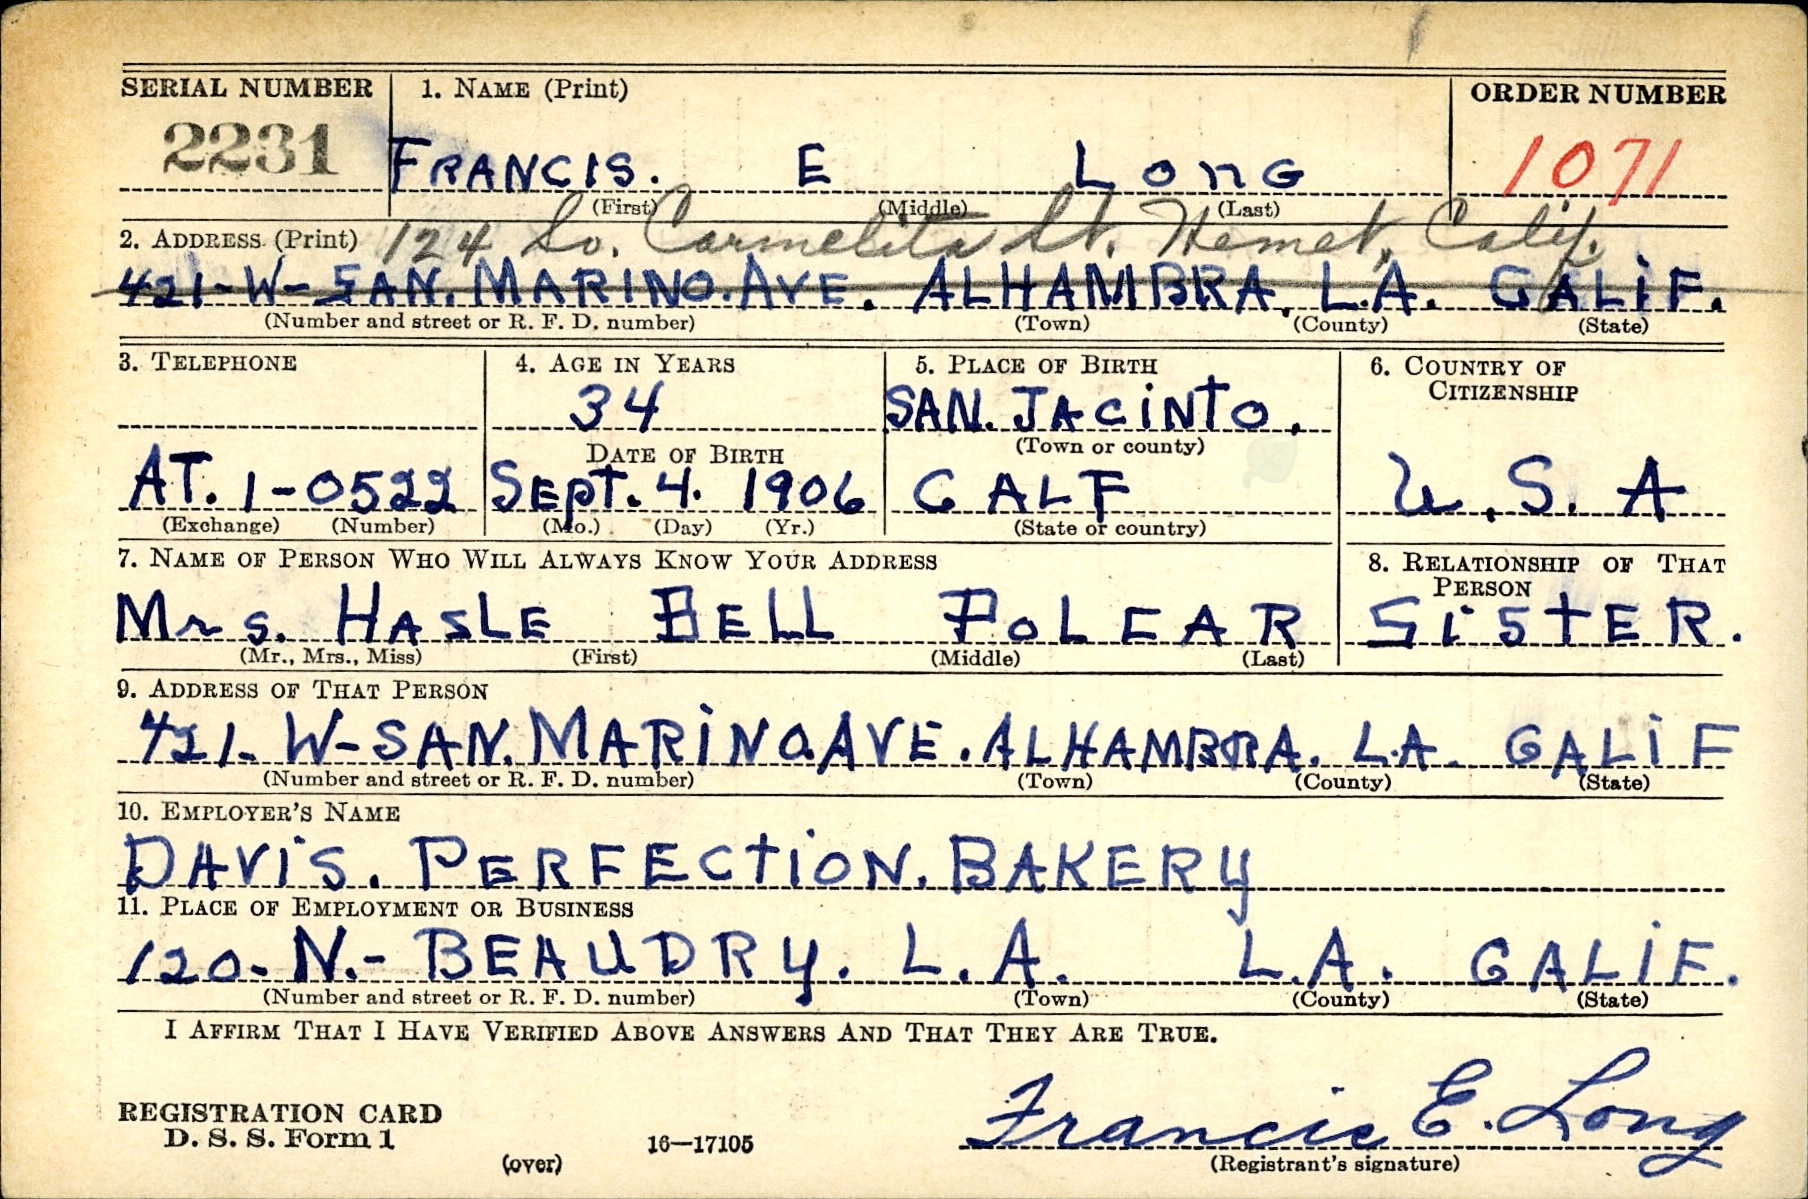 SERIAL NUMBER 1. NAME (Print) ORDER NUMBER
2231 FRANCIS. E LONG 1071
(First) (Middle) (Last)
2. ADDRESS (Print) 124 So. Carmelita St. Hemet, Calif.
421-W-SAN. MARINO. AVE. ALHAMBRA, L.A. CALIF.
(Number and street or R. F. D. number) (Town) (County) (State)
3. TELEPHONE 4. AGE IN YEARS 5. PLACE OF BIRTH 6. COUNTRY OF
CITIZENSHIP
34 SAN. JACINTO.
DATE OF BIRTH (Town or county)
AT. 1-0522 SEPT. 4. 1906 CALF U.S.A
(Exchange) (Number) (Mo.) (Day) (Yr.) (State or country)
7. NAME OF PERSON WHO WILL ALWAYS KNOW YOUR ADDRESS 8. RELATIONSHIP OF THAT
PERSON
Mrs. HASLE BELL POLCAR SISTER.
(Mr., Mrs., Miss) (First) (Middle) (Last)
9. ADDRESS OF THAT PERSON
421. W-SAN. MARINO. AVE. ALHAMBRA. L.A. CALIF
(Number and street or R. F. D. number) (Town) (County) (State)
10. EMPLOYER'S NAME
DAVIS. PERFECTION. BAKERY
11. PLACE OF EMPLOYMENT OR BUSINESS
120. N.- BEAUDRY. L.A. L.A. CALIF.
(Number and street or R. F. D. number) (Town) (County) (State)
I AFFIRM THAT I HAVE VERIFIED ABOVE ANSWERS AND THAT THEY ARE TRUE.
REGISTRATION CARD
D. S. S. Form 1 16—17105 Francis E. Long
(over) (Registrant's signature)